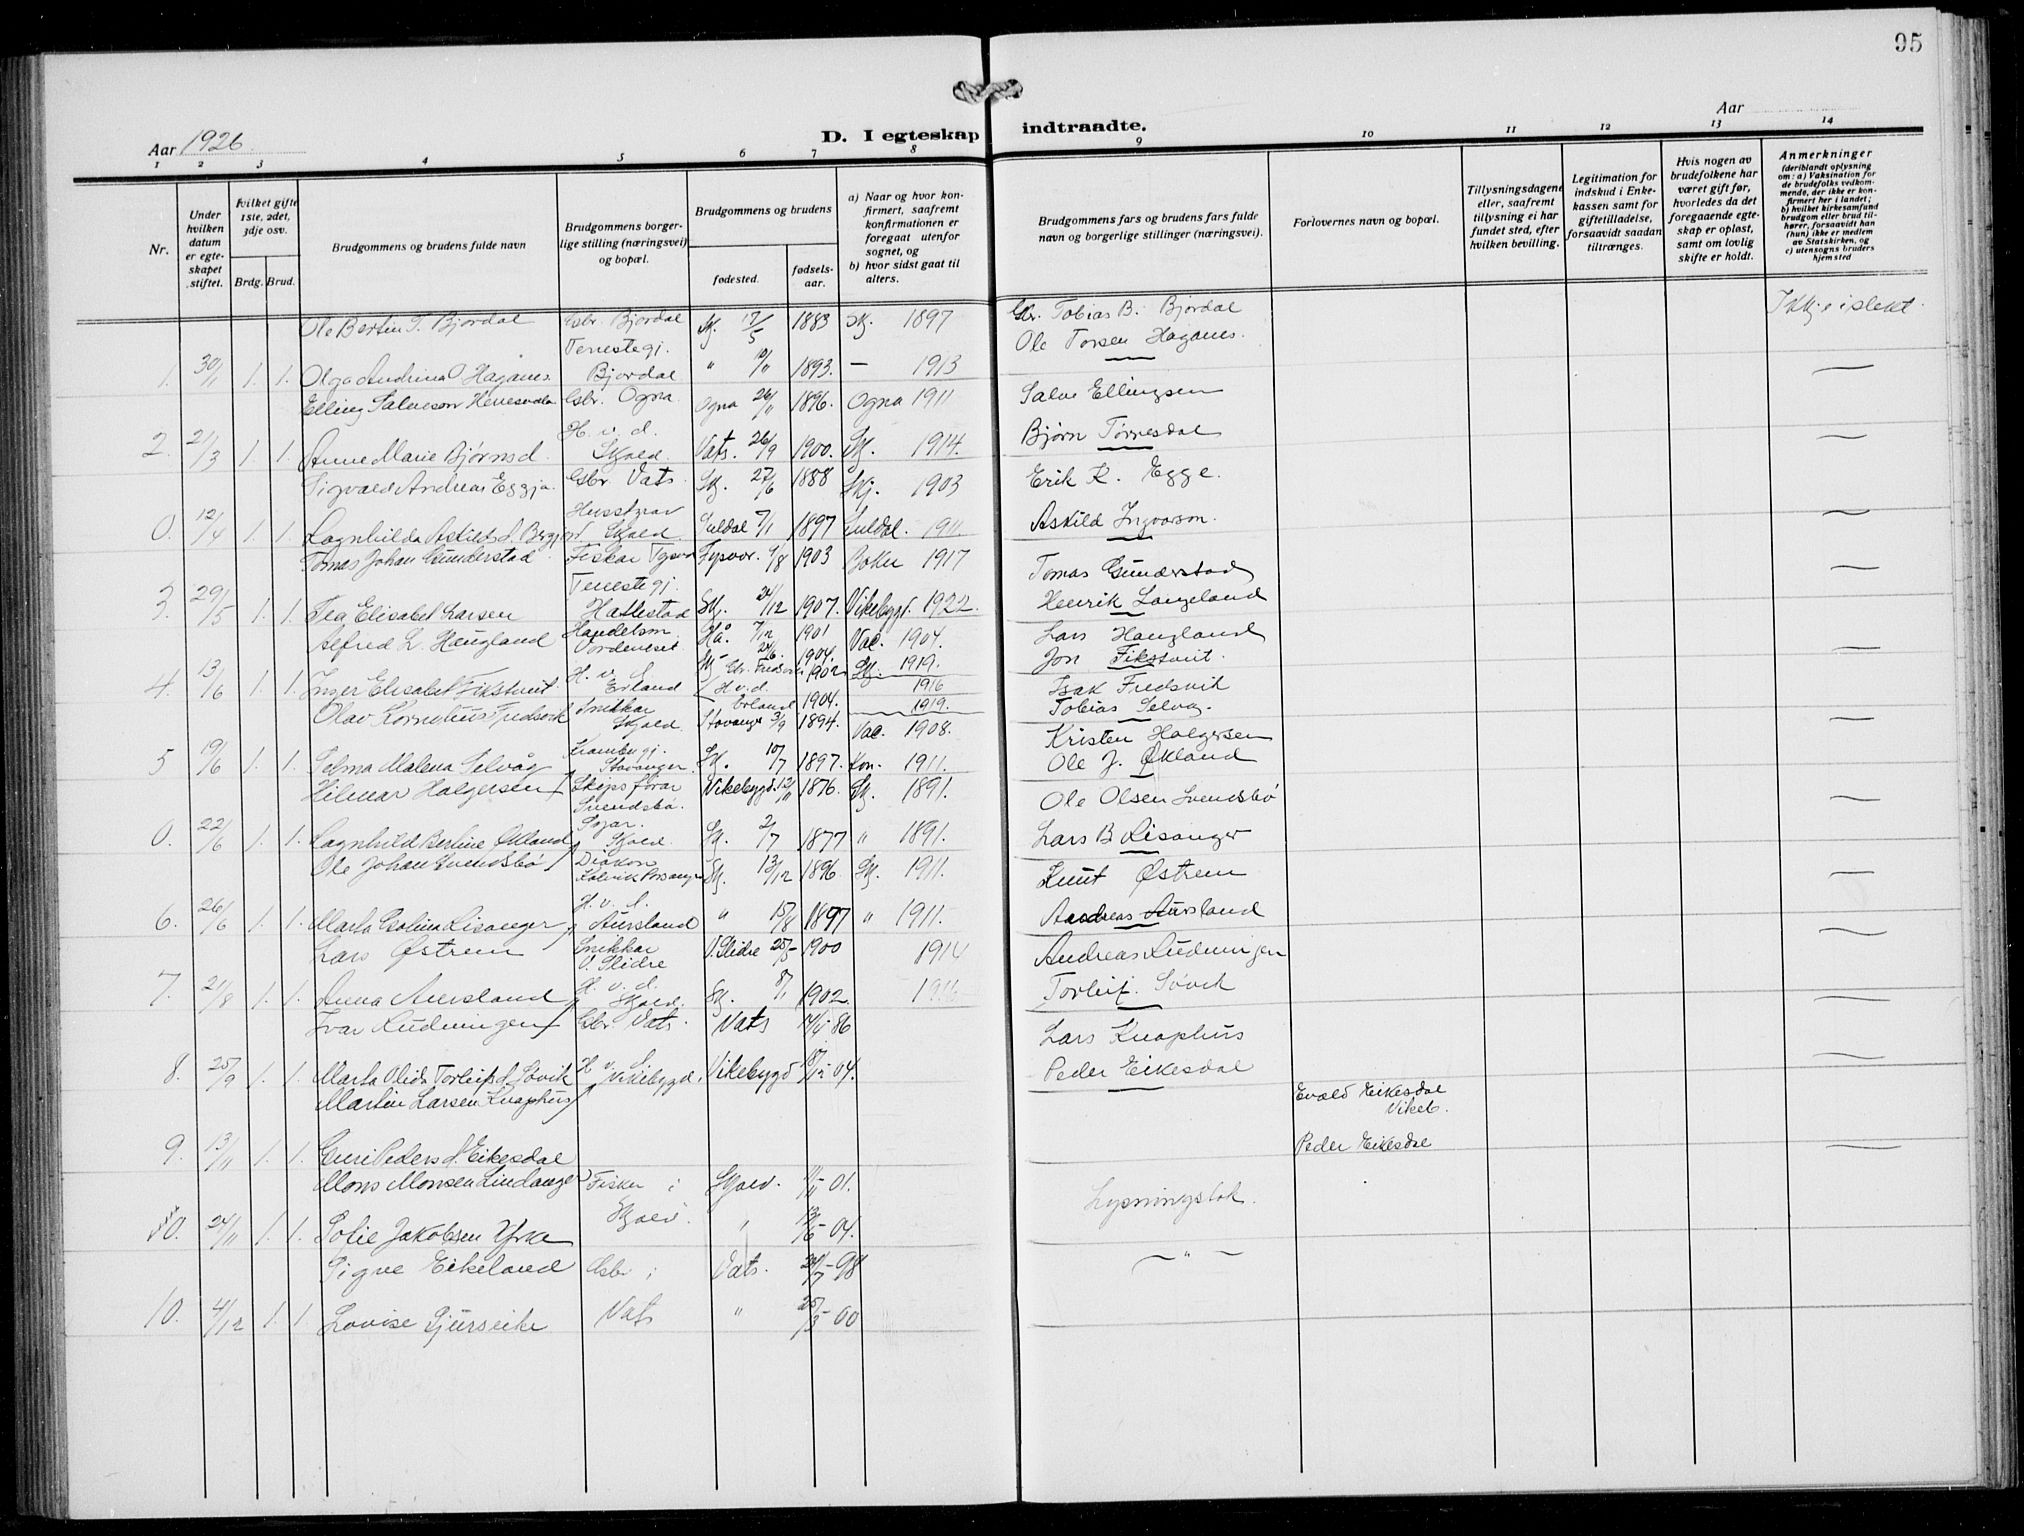 95
Aar 1926
D. I egteskap indtraadte.
Aar
1 2 3 4 5 6 7 8 9 10 11 12 13 14
Nr.
Under hvilken datum er egteskapet stiftet.
Hvilket gifte 1ste, 2det, 3dje osv.
Brdg. Brud.
Brudgommens og brudens fulde navn
Brudgommens borgerlige stilling (næringsvei) og bopæl.
Brudgommens og brudens
fødested.
fødselsaar.
a) Naar og hvor konfirmert, saafremt konfirmationen er foregaat utenfor sognet, og
b) hvor sidst gaat til alters.
Brudgommens fars og brudens fars fulde navn og borgerlige stillinger (næringsvei).
Forlovernes navn og bopæl.
Tillysningsdagene eller, saafremt tillysning ei har fundet sted, efter hvilken bevilling.
Legitimation for indskud i Enkekassen samt for giftetilladelse, forsaavidt saadan tiltrænges.
Hvis nogen av brudefolkene har været gift før, hvorledes da det foregaaende egteskap er opløst, samt om lovlig skifte er holdt.
Anmerkninger
(deriblandt oplysning om: a) Vaksination for de brudefolks vedkommende, der ikke er konfirmert her i landet; b) hvilket kirkesamfund brudgom eller brud tilhører, forsaavidt han (hun) ikke er medlem av Statskirken, og c) utensogns bruders hjemsted
Ole Bertin T. Bjordal Gbr. Bjordal Skj. 17/5 1883 Skj. 1897 Gbr. Tobias B. Bjordal Ikkje i slekt.
Tenestegj. Ole Torsen Haganes.
1. 30/1 1. 1. Olga Andrina O Haganes. Bjordal " 10/11 1893. — 1913
Elling Salveson Gbr. Ogna. Ogna 26/11 1896. Ogna 1911 Salve Ellingsen
H. v. d. Bjørn Tørresdal
2. 21/3 1. 1. Anne Marie Bjørnsd. Skjold. Vats. 26/9 1900. Skj. 1914.
Sigvald Andreas Eggja. Gbr. Vats. Skj. 27/6 1888 Skj. 1903 Erik R. Egge.
Husstyrar Askild Ingvarson.
0. 12/4 1. 1. Ragnhilda Askilds d. Skjold Suldal 7/1 1897 Suldal. 1911.
Tomas Johan Gunderstad Fiskar Tysvær Tysvær. 1/8 1903 Bokn 1917 Tomas Gunderstad
Tenestegj. Henrik Langeland
3. 29/5 1. 1. Tea Elisabet Larsen Hattestad Skj. 24/12 1907. Vikebygd. 1922.
Alfred L. Haugland Handelsm. Hå. 7/12 1901 Vac. 1904. Lars Haugland
Vordeneset 24/6. 1904. Skj. 1919. Jon Fikstveit.
4. 13/6 1. 1. Inger Elisabet Fikstveit H. v. d. Erland Gbr. 1902 1916 Isak Fredsvik
H v. d. Erland 1904. 1919. Tobias Selvåg.
Olav Kornelius Fredsvik Snikkar Skjold. Stavanger 3/9 1894. Vac. 1908. Kristen Holgersen
Krambugj. Ole J. Økland
5 19/6 1. 1. Selma Malena Selvåg Stavanger. Skj. 10/7 1897. Kon. 1911.
Hilmar Holgersen Skipsførar Vikebygd. 12/11 1876. Skj. 1891. Ole Olsen Svendsbø
Svendsbø.
0. 22/6 1. 1. Ragnhild Berline Økland Skjold. Skj. 2/7 1877 " 1891. Lars B Lisanger
Ole Johan Svendsbø Diakon Skj. 13/12 1896 Skj. 1911. Knut Østrem
H. v. d.
6. 26/6 1. 1. Marta Lisanger Aursland " 15/8 1897 " 1911. Andreas Aursland
Lars Østrem Snikkar V. Slidre V. Slidre 25/5 - 1900 1914 Andreas Ludningen
7. 21/8 1. 1. Anna Aursland H. v. d. Skjold. Skj. 8/1 1902. Torleif. Søvik
Ivar Ludningen Gbr. Vats. Vats 86 Lars Knaphus
8. 25/9 1. 1. Marta Olida Torleifs d. Søvik H. v. d. Vikebygd. Vikebygd 04. Peder Eikesdal
Martin Larsen Knaphus Evald Eikesdal Vikeb.
9. 13/11 1. 1. Guri Peders d. Eikesdal Peder Eikesdal
Mons Monsen Lindanger Fisker i Skjold. 01. Lysningsbok.
10. 24/11 1. 1. Sofie Jakobsen Yrka Skjold. " 13/6 - 04.
Sigve Eikeland Gbr i Vats. 24/7 - 98 — " —
10. 4/12 1. 1. Lovise Gjurseike Vats " 25/3 - 00